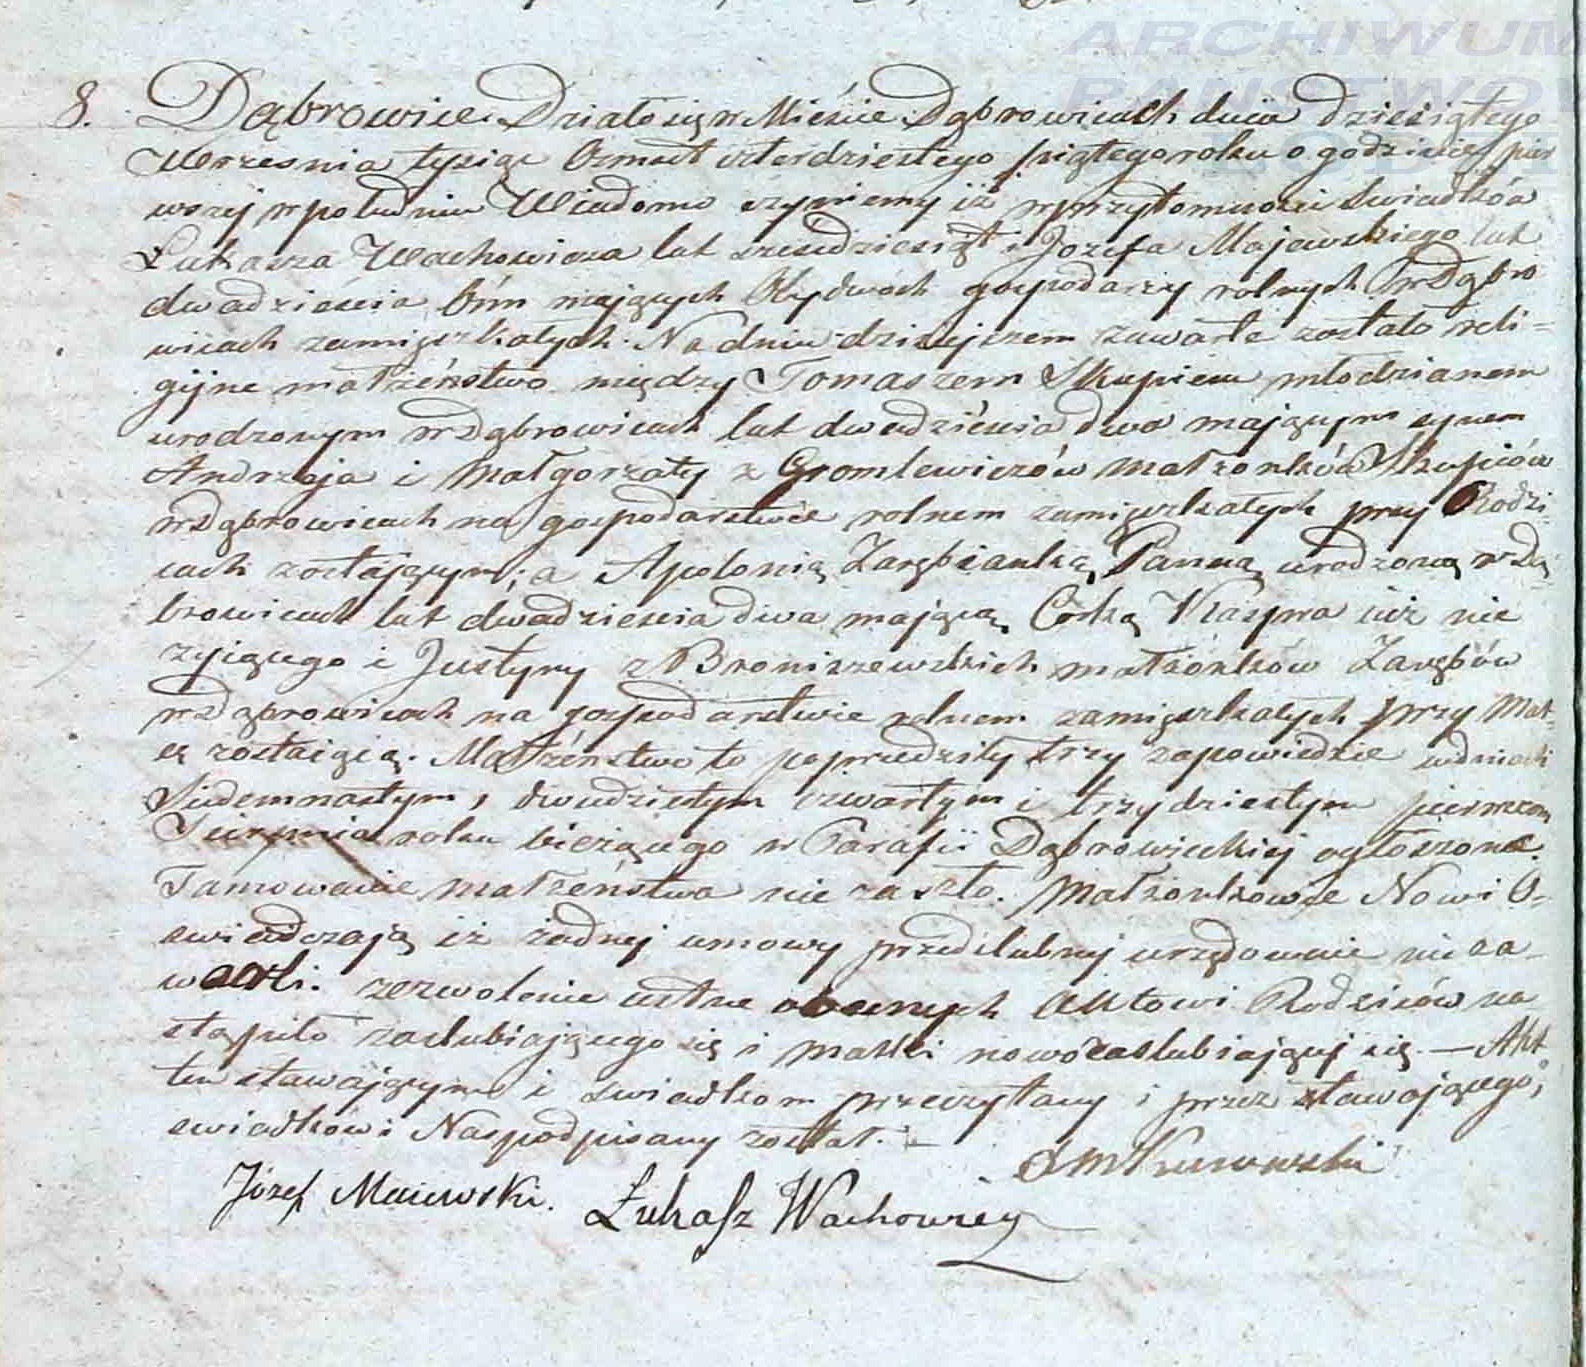 ARCHIWUM
PAŃSTWOW
ŁODZI
8. Dąbrowice. Działo się w Mieście Dąbrowicach dnia dziesiątego
Wrzesnia tysiąc Osmset czterdziestego piątego roku o godzinie pier
wszej w południu Wiadomo czyniemy iż w przytomności Swiadków
Łukasza Wachowicza lat sześćdziesiąt i Józefa Majewskiego lat
dwadzieścia Ośm mających Obydwóch gospodarzy rolnych w Dąbro
wicach zamięszkałych. Na dniu dzisiejszem zawarte zostało reli=
gijne małżeństwo między Tomaszem Skupiem młodzianem
urodzonym w Dąbrowicach lat dwadzieścia dwa mającym synem
Andrzeja i Małgorzaty z Gromlewiczów małżonków Skupiów
w Dąbrowicach na gospodarstwie rolnem zamięszkałych przy Rodzi-
cach zostającym; a Apolonią Zarębianką Panną urodzoną w Dą
browicach lat dwadzieścia dwa mającą Córką Kaspra iuż nie
żyiącego i Justyny z Broniszewskich małżonków Zarębów
w Dąbrowicach na gospodarstwie rolnem zamięszkałych przy Mat-
ce zostaiącą. Małżeństwo to poprzedziły trzy zapowiedzie w dniach
Siedemnastym, dwudziestym czwartym i trzydziestym pierwszem
Sierpnia roku bieżącego w Parafii Dąbrowieckiej ogłoszone.
Tamowanie małżeństwa nie zaszło. Małżonkowie Nowi O-
swiadczają iż żadnej umowy przedślubnej urzędownie nie za-
warli. zezwolenie ustne obecnych Aktowi Rodziców na
stąpiło zaslubiającego się i matki nowozaslubiającej się. — Akt
ten stawającym i swiadkom przeczytany i przez stawającego,
swiadków i Nas podpisany został. —
Józef Maiewski. Łukasz Wachowicz